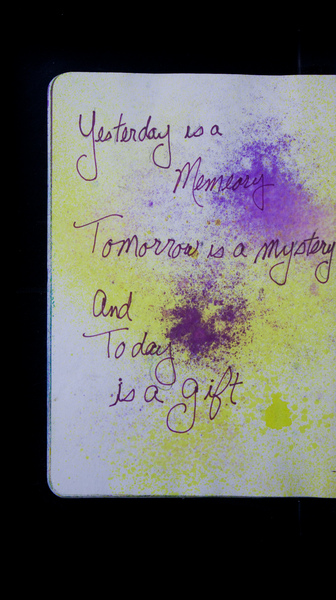 Yesterday is a
Memeory
Tomorrow is a mystery
And
Today
is a gift